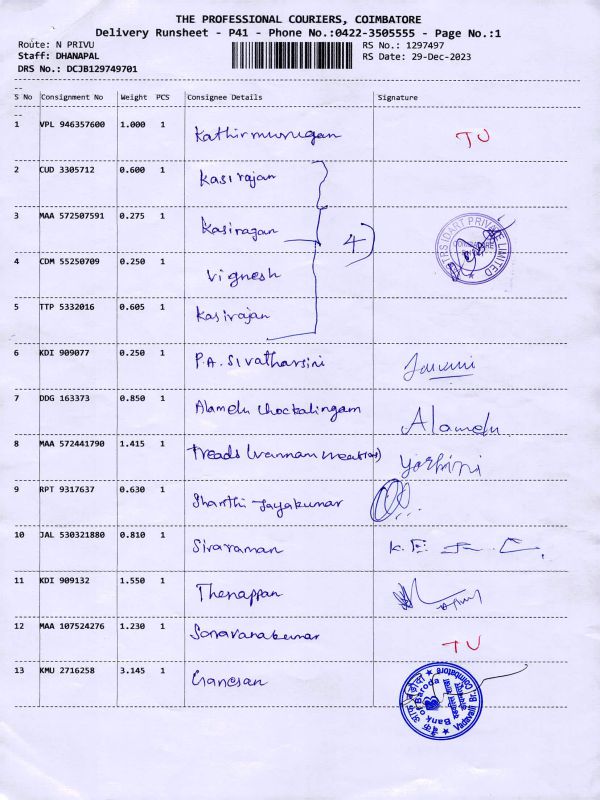 THE PROFESSIONAL COURIERS, COIMBATORE
Delivery Runsheet - P41 - Phone No.:0422-3505555 - Page No.:1
Route: N PRIVU
RS No.: 1297497
Staff: DHANAPAL
RS Date: 29-Dec-2023
DRS No.: DCJB129749701
S No Consignment No Weight PCS Consignee Details Signature
1 VPL 946357600 1.000 1 Kathirmurugan TU
2 CUD 3305712 0.600 1 Kasirajan
3 MAA 572507591 0.275 1 Kasirajan
4
4 CDM 55250709 0.250 1 Vignesh
5 TTP 5332016 0.605 1 Kasirajan
6 KDI 909077 0.250 1 P.A. Sivatharsini
7 DDG 163373 0.850 1 Alamelu Chockalingam Alamelu
8 MAA 572441790 1.415 1 Treads Yazhini
9 RPT 9317637 0.630 1 Shanthi Jayakumar
10 JAL 530321880 0.810 1 Sivaraman
11 KDI 909132 1.550 1 Thenappan
12 MAA 107524276 1.230 1 Saravanakumar TU
13 KMU 2716258 3.145 1 Ganesan
Bank of Baroda
Vadavalli Br. Coimbatore